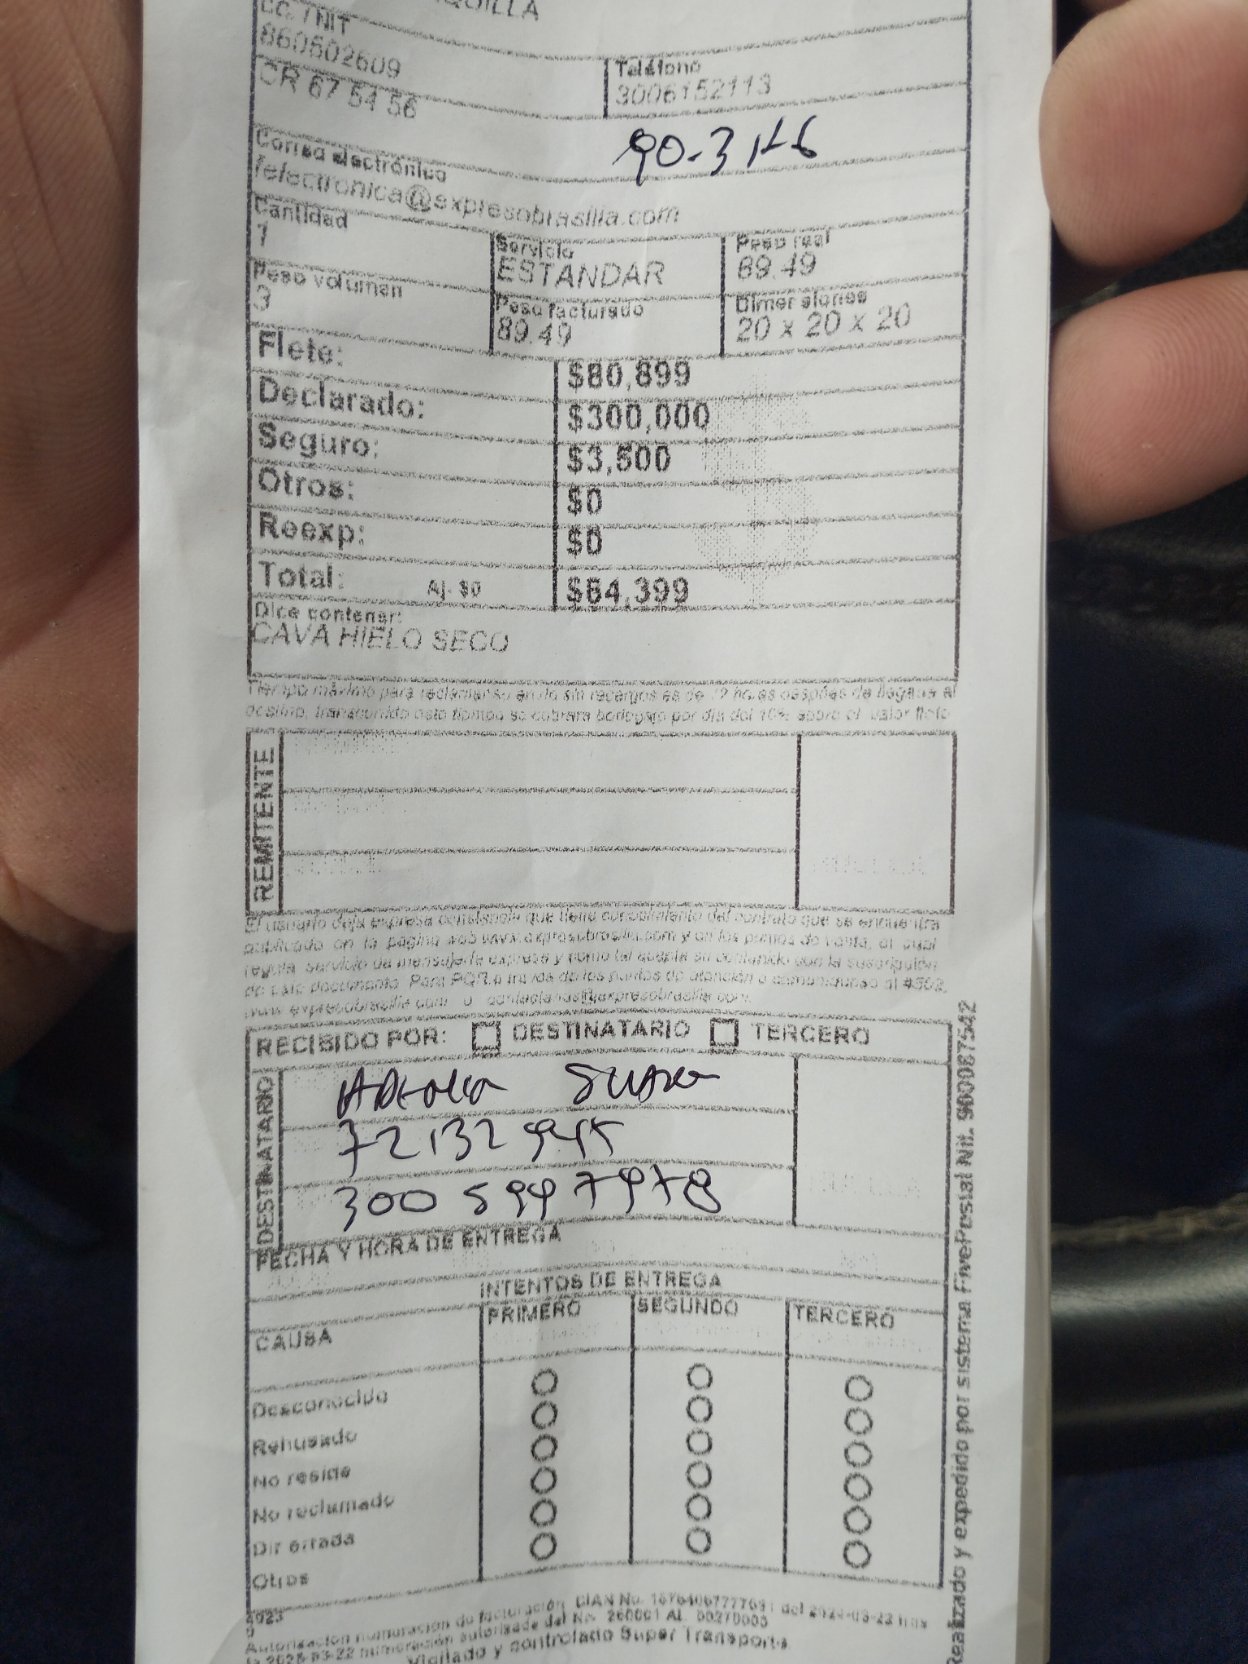 CC / NIT
860502609
CR 67 54 56
Teléfono
3006152113
Correo electrónico
felectronica@expresobrasilia.com
Cantidad
1
Servicio
ESTANDAR
Peso real
89.49
Peso volumen
3
Peso facturado
89.49
Dimensiones
20 x 20 x 20
Flete: $80,899
Declarado: $300,000
Seguro: $3,500
Otros: $0
Reexp: $0
Total: Aj. $0 $84,399
Dice contener:
CAVA HIELO SECO
Tiempo máximo para reclamar su envío sin recargos es de 72 horas después de llegada al
destino, transcurrido este tiempo se cobrara bodegaje por día del 10% sobre el valor flete
REMITENTE
El usuario deja expresa constancia que tiene conocimiento del contrato que se encuentra
publicado en la página web www.expresobrasilia.com y en los puntos de venta, el cual
regula servicio de mensajería expresa y como tal acepta su contenido con la suscripción
de este documento. Para PQR a través de los puntos de atención o comuníquese al #502,
www.expresobrasilia.com o
RECIBIDO POR: DESTINATARIO TERCERO
DESTINATARIO
300 5947978
FECHA Y HORA DE ENTREGA
INTENTOS DE ENTREGA
CAUSA PRIMERO SEGUNDO TERCERO
Desconocido
Rehusado
No reside
No reclamado
Dir errada
Otros
Autorización numeración de facturación DIAN No.
Vigilado y controlado Super Transporte
Realizado y expedido por sistema FivePostal Nit. 900087542